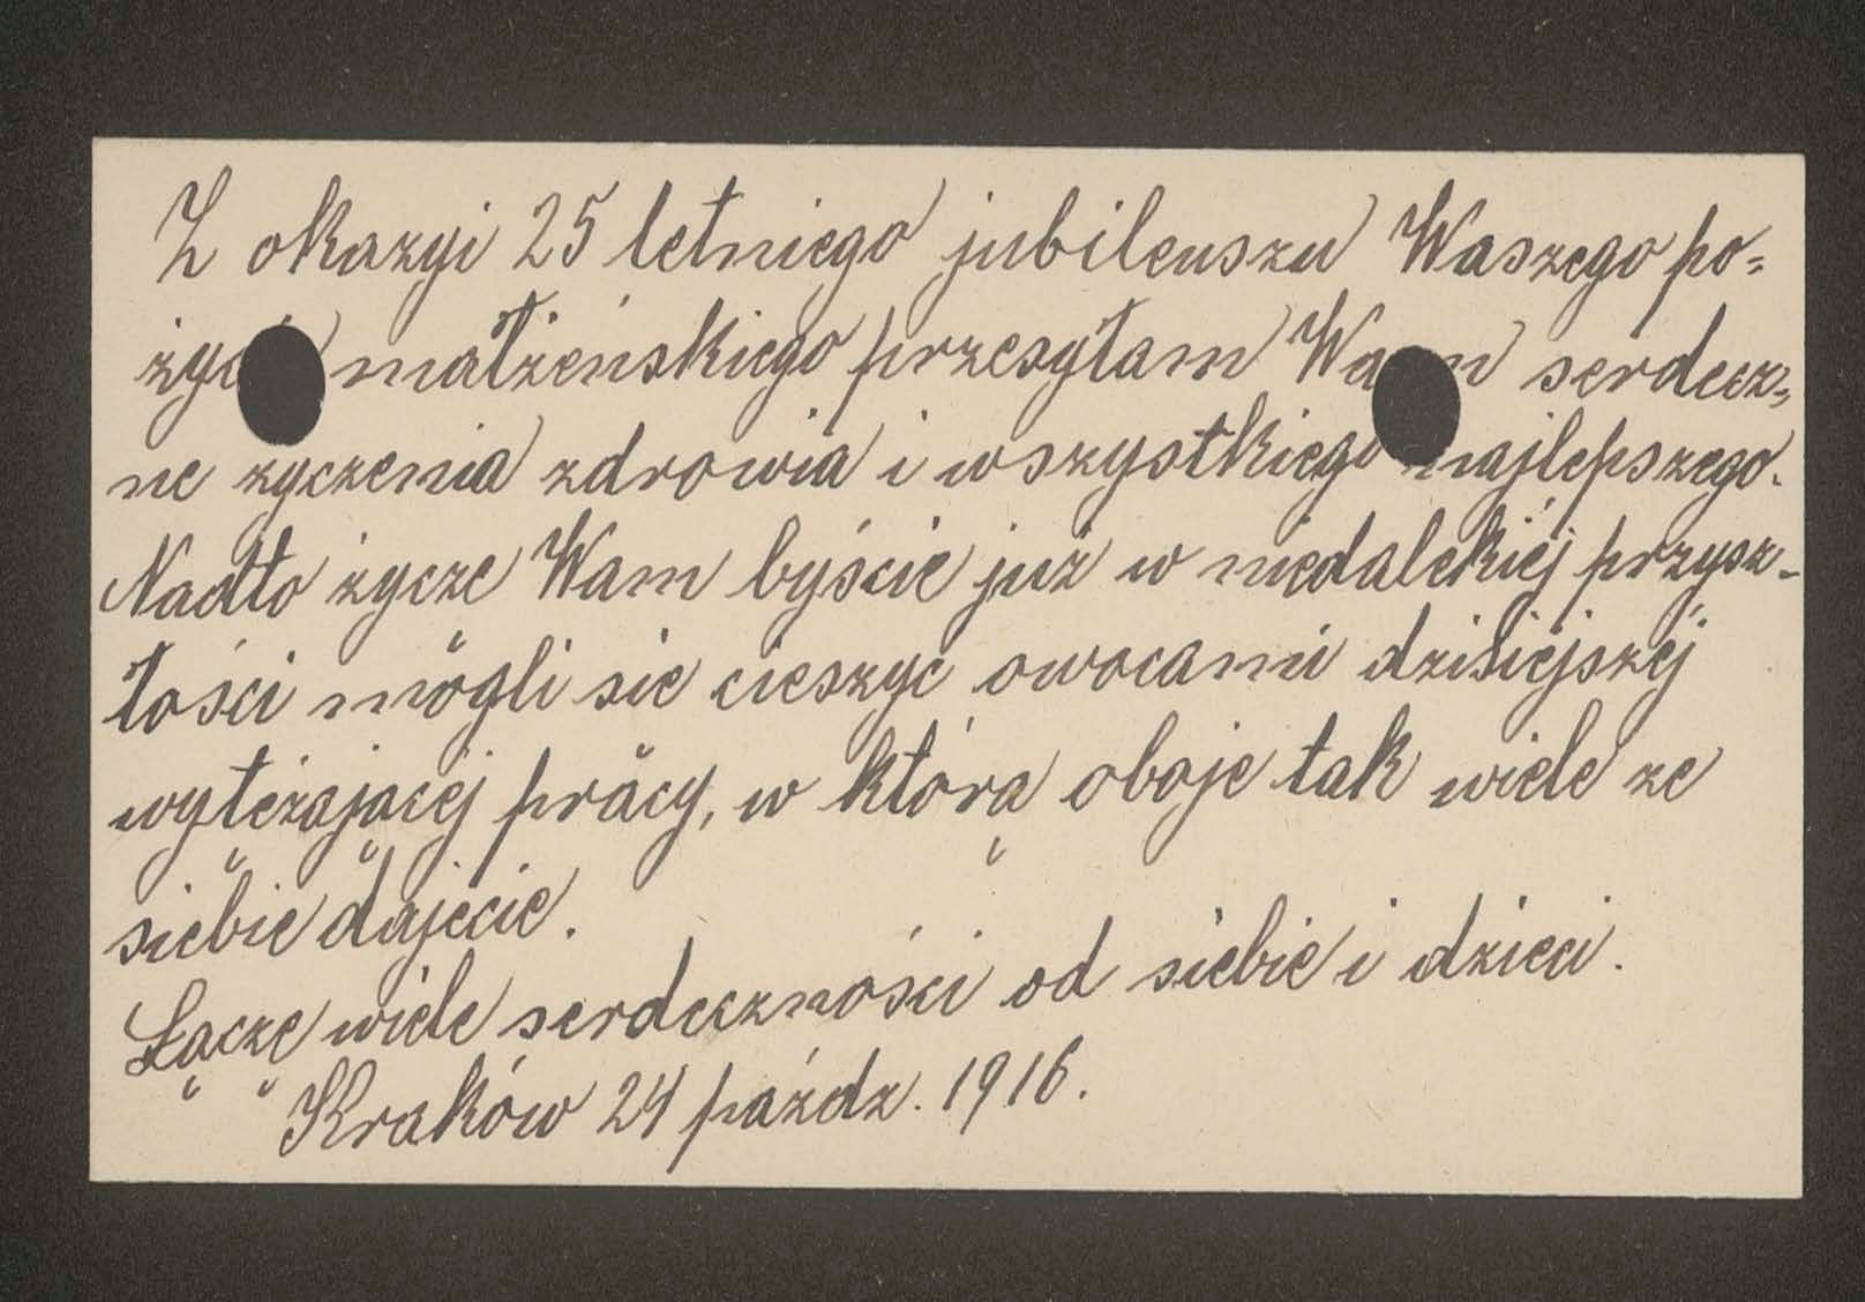 Z okazyi 25 letniego jubileuszu Waszego po=
życia małżeńskiego przesyłam Wam serdecz=
ne życzenia zdrowia i wszystkiego najlepszego.
Nadto życzę Wam byście już w niedalekiéj przysz-
łości mógli się cieszyć owocami dzisiéjszéj
wytężającéj pracy, w którą oboje tak wiele ze
siebie dajecie.
Łączę wiele serdeczności od siebie i dzieci.
Kraków 24 paźdz. 1916.